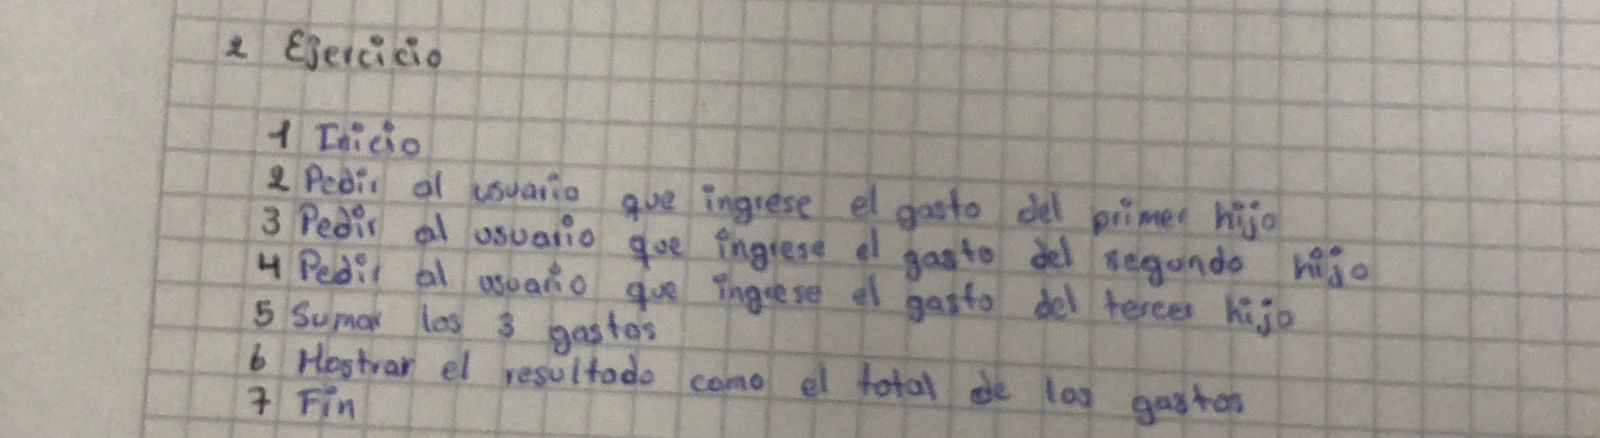 2 Ejercicio
1 Inicio
2 Pedir al usuario que ingrese el gasto del primer hijo
3 Pedir al usuario que ingrese el gasto del segundo hijo
4 Pedir al usuario que ingrese el gasto del tercer hijo
5 Sumar los 3 gastos
6 Mostrar el resultado como el total de los gastos
7 Fin